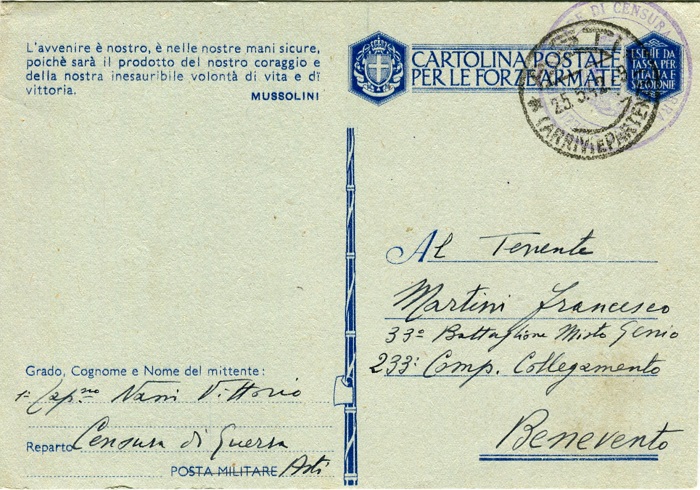 L'avvenire è nostro, è nelle nostre mani sicure,
poichè sarà il prodotto del nostro coraggio e
della nostra inesauribile volontà di vita e di
vittoria.
MUSSOLINI
CARTOLINA POSTALE
PER LE FORZE ARMATE
ESENTE DA
TASSA PER
L'ITALIA E
COLONIE
DI CENSURA
25.5.42
(ARRIVI E PARTENZE)
Al Tenente
Martini Francesco
33º Battaglione Misto Genio
233ª Comp. Collegamento
Benevento
Grado, Cognome e Nome del mittente:
1º Cap.no Nani Vittorio
Reparto Censura di Guerra
POSTA MILITARE Asti